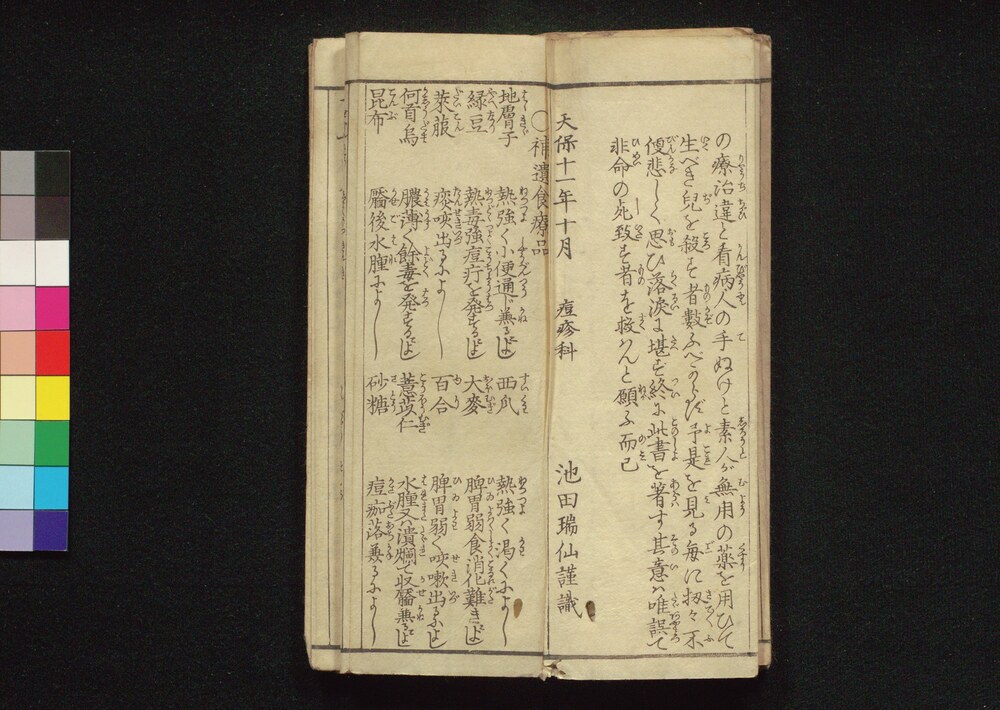 の療治違と看病人の手ぬけと素人が無用の薬を用ひて
生べき兒を殺す者數ふべからず予是を見る毎に扨々不
便悲しく思ひ落涙に堪ず終に此書を著す其意ハ唯誤て
非命の死致す者を救んと願ふ而已
天保十一年十月 痘疹科 池田瑞仙謹識
〇補遺食療品
地膚子 熱強く小便通じ兼るによし 西瓜 熱強く渇くによし
緑豆 熱毒強痘疔を発するによし 大麥 脾胃弱食消化難きによし
萊菔 痰咳出るによし 百合 脾胃弱く咳嗽出るによし
何首烏 膿薄く餘毒を発するによし 薏苡仁 水腫又ハ潰爛て収靨兼るによし
昆布 靨後水腫によし 砂糖 痘痂落兼るによし